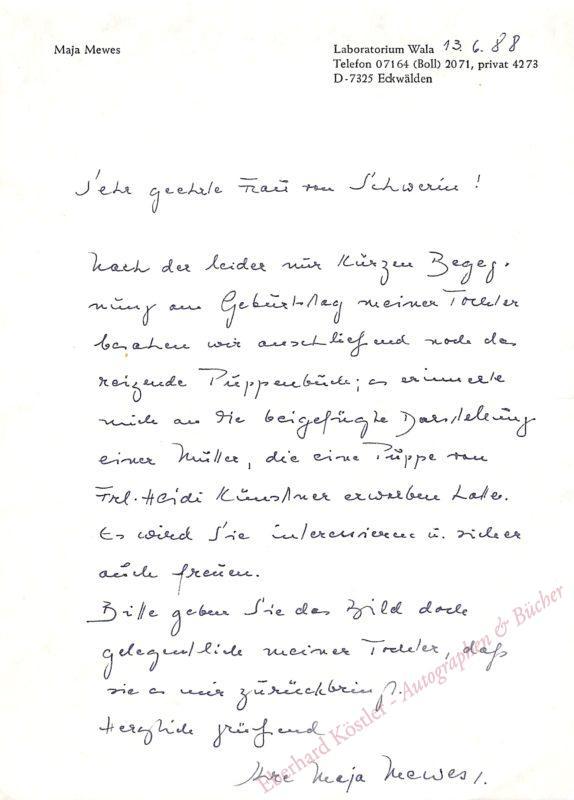 Maja Mewes
Laboratorium Wala 13. 6. 88
Telefon 07164 (Boll) 2071, privat 4273
D-7325 Eckwälden
Sehr geehrte Frau von Schwerin!
Nach der leider nur kurzen Begeg-
nung am Geburtstag meiner Tochter
besahen wir anschließend noch das
reizende Puppenbuch; es erinnerte
mich an die beigefügte Darstellung
einer Mutter, die eine Puppe von
Frl. Heidi Künstner erworben hatte.
Es wird Sie interessieren u. sicher
auch freuen.
Bitte geben Sie das Bild doch
gelegentlich meiner Tochter, daß
sie es mir zurückbringt.
Herzlich grüßend
Ihre Maja Mewes.
Eberhard Köstler - Autographen & Bücher